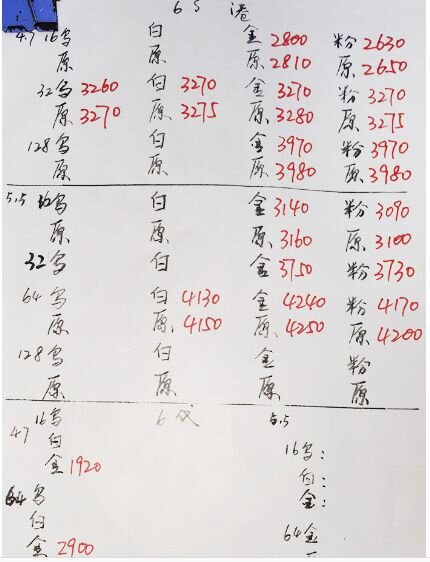 6S 港
4.7 16乌 白 金2800 粉2630
原 原 原2810 原2650
32乌3260 白3270 金3270 粉3270
原3270 原3275 原3280 原3275
128乌 白 金3970 粉3970
原 原 原3980 原3980
5.5 乌 白 金3140 粉3090
原 原 原3160 原3100
32乌 白 金3750 粉3730
64乌 白4130 金4240 粉4170
原 原4150 原4250 原4200
128乌 白 金 粉
原 原 原 原
4.7 16乌 6代 5.5
白
金1920
64乌
白
金2900
16乌:
白:
金:
64金